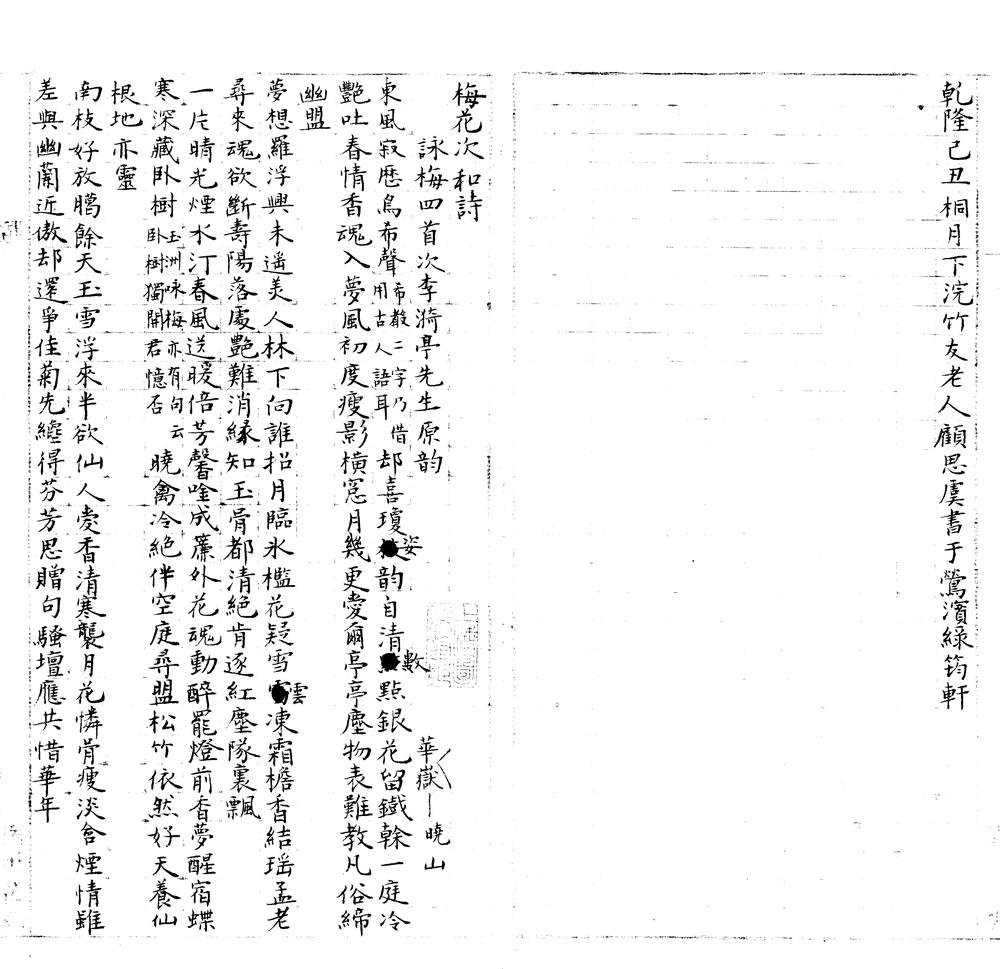 乾隆己丑桐月下浣竹友老人顧思虞書于鶯濱綠筠軒
梅花次和詩
詠梅四首次李漪亭先生原韵
華嶽曉山
東風寂歷鳥希聲希散二字乃借用古人語耳却喜瓊姿韵自清數點銀花留鐵幹一庭冷
艷吐春情香魂入夢風初度瘦影橫窓月幾更愛爾亭亭塵物表難教凡俗締
幽盟
夢想羅浮興未遥美人林下向誰招月臨氷檻花疑雪雲凍霜檐香結瑶孟老
尋來魂欲斷壽陽落處艷難消緣知玉骨都清絕肯逐紅塵隊裏飄
一片晴光煙水汀春風送暖倍芳馨唫成簾外花魂動醉罷燈前香夢醒宿蝶
寒深藏卧樹玉洲咏梅亦有句云卧樹獨開君憶否曉禽冷絕伴空庭尋盟松竹依然好天養仙
根地亦靈
南枝好放臈餘天玉雪浮來半欲仙人愛香清寒襲月花憐骨瘦淡含煙情雖
差與幽蘭近傲却還爭佳菊先纔得芬芳思贈句騷壇應共惜華年